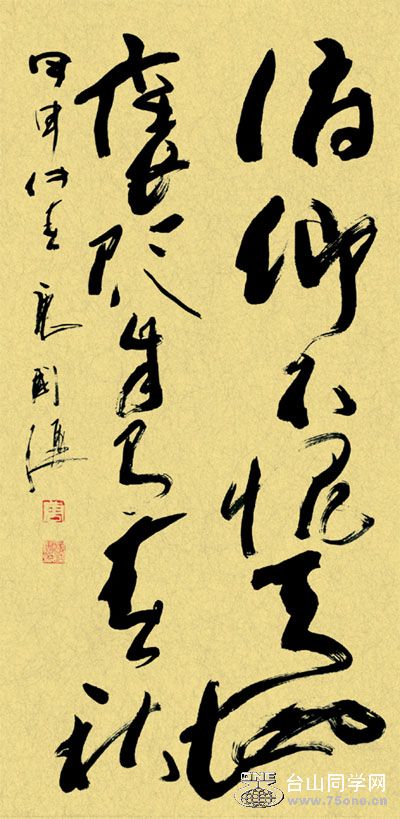 俯仰不愧天地
褒贬自有春秋
甲申仲春
ONE
台山同学网
www.75one.cn